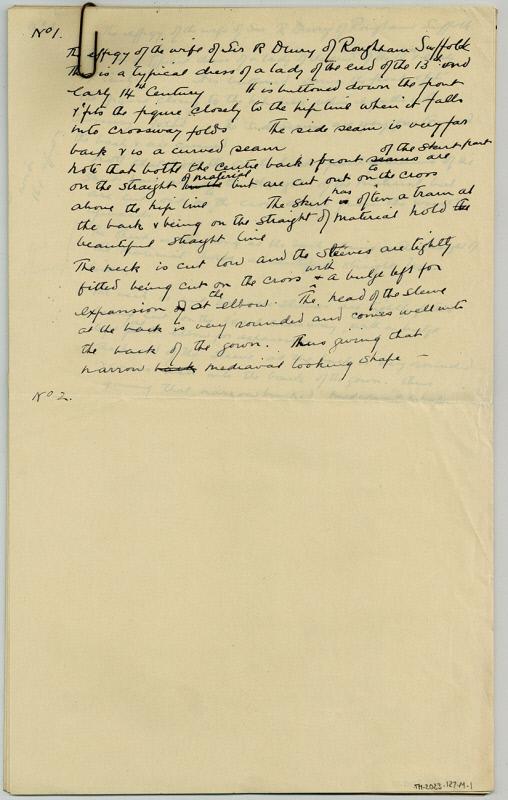 No 1.
The effigy of the wife of Sir R Drury of Rougham Suffolk
This is a typical dress of a lady of the end of the 13th and
Early 14th Century It is buttoned down the front
& fits the figure closely to the hip line when it falls
into crossway folds The side seam is very far
back & is a curved seam of the skirt part
Note that both the centre back & front seams are
on the straight of material but are cut out on to the cross
above the hip line The skirt has is often a train at
the back & being on the straight of material hold the
beautiful straight line
The neck is cut low and the sleeves are tightly
fitted being cut on the cross & with a bulge left for
expansion of at the elbow. The head of the sleeve
at the back is very rounded and comes well into
the back of the gown. Thus giving that
narrow back mediaval looking shape
No 2.
TH-2023-127-M-1